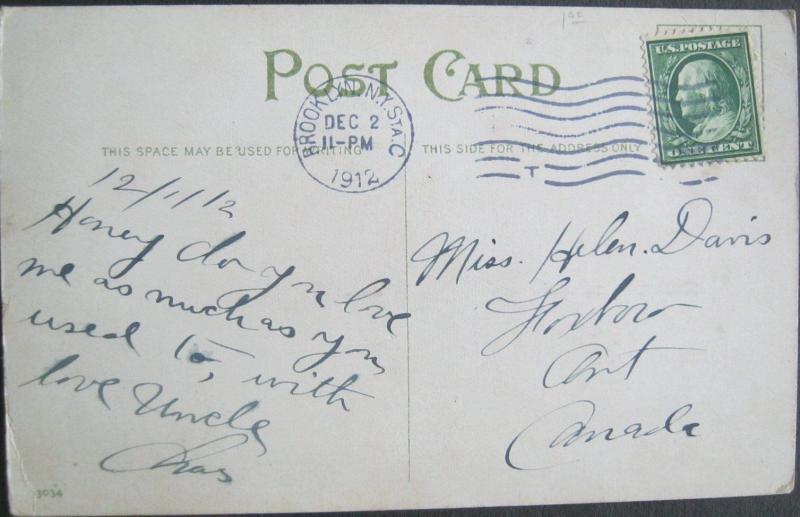 POST CARD
BROOKLYN, N.Y. STA. C
DEC 2
11-PM
1912
U.S. POSTAGE
ONE CENT
THIS SPACE MAY BE USED FOR WRITING
THIS SIDE FOR THE ADDRESS ONLY
T
12/1/12
Honey do you love
me as much as you
used to, with
love Uncle
Chas
Miss. Helen. Davis
Foxboro
Ont
Canada
3034